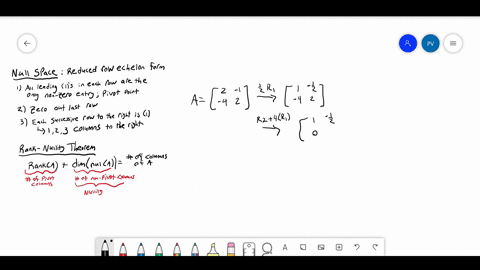 Null Space: Reduced row echelon form
1) All leading (1)s in each row are the
only non-zero entry; Pivot point
2) Zero out last row
3) Each successive row to the right is (1)
↳ 1, 2, 3 columns to the right
Rank-Nullity Theorem
Rank(A) + dim(nul(A)) = # of columns
of A
# of Pivot
columns
# of non-Pivot columns
Nullity
A = [ 2 -1
-4 2 ] ½R₁ → [ 1 -½
-4 2 ]
R2+4(R₁) → [ 1 -½
0
PV
A